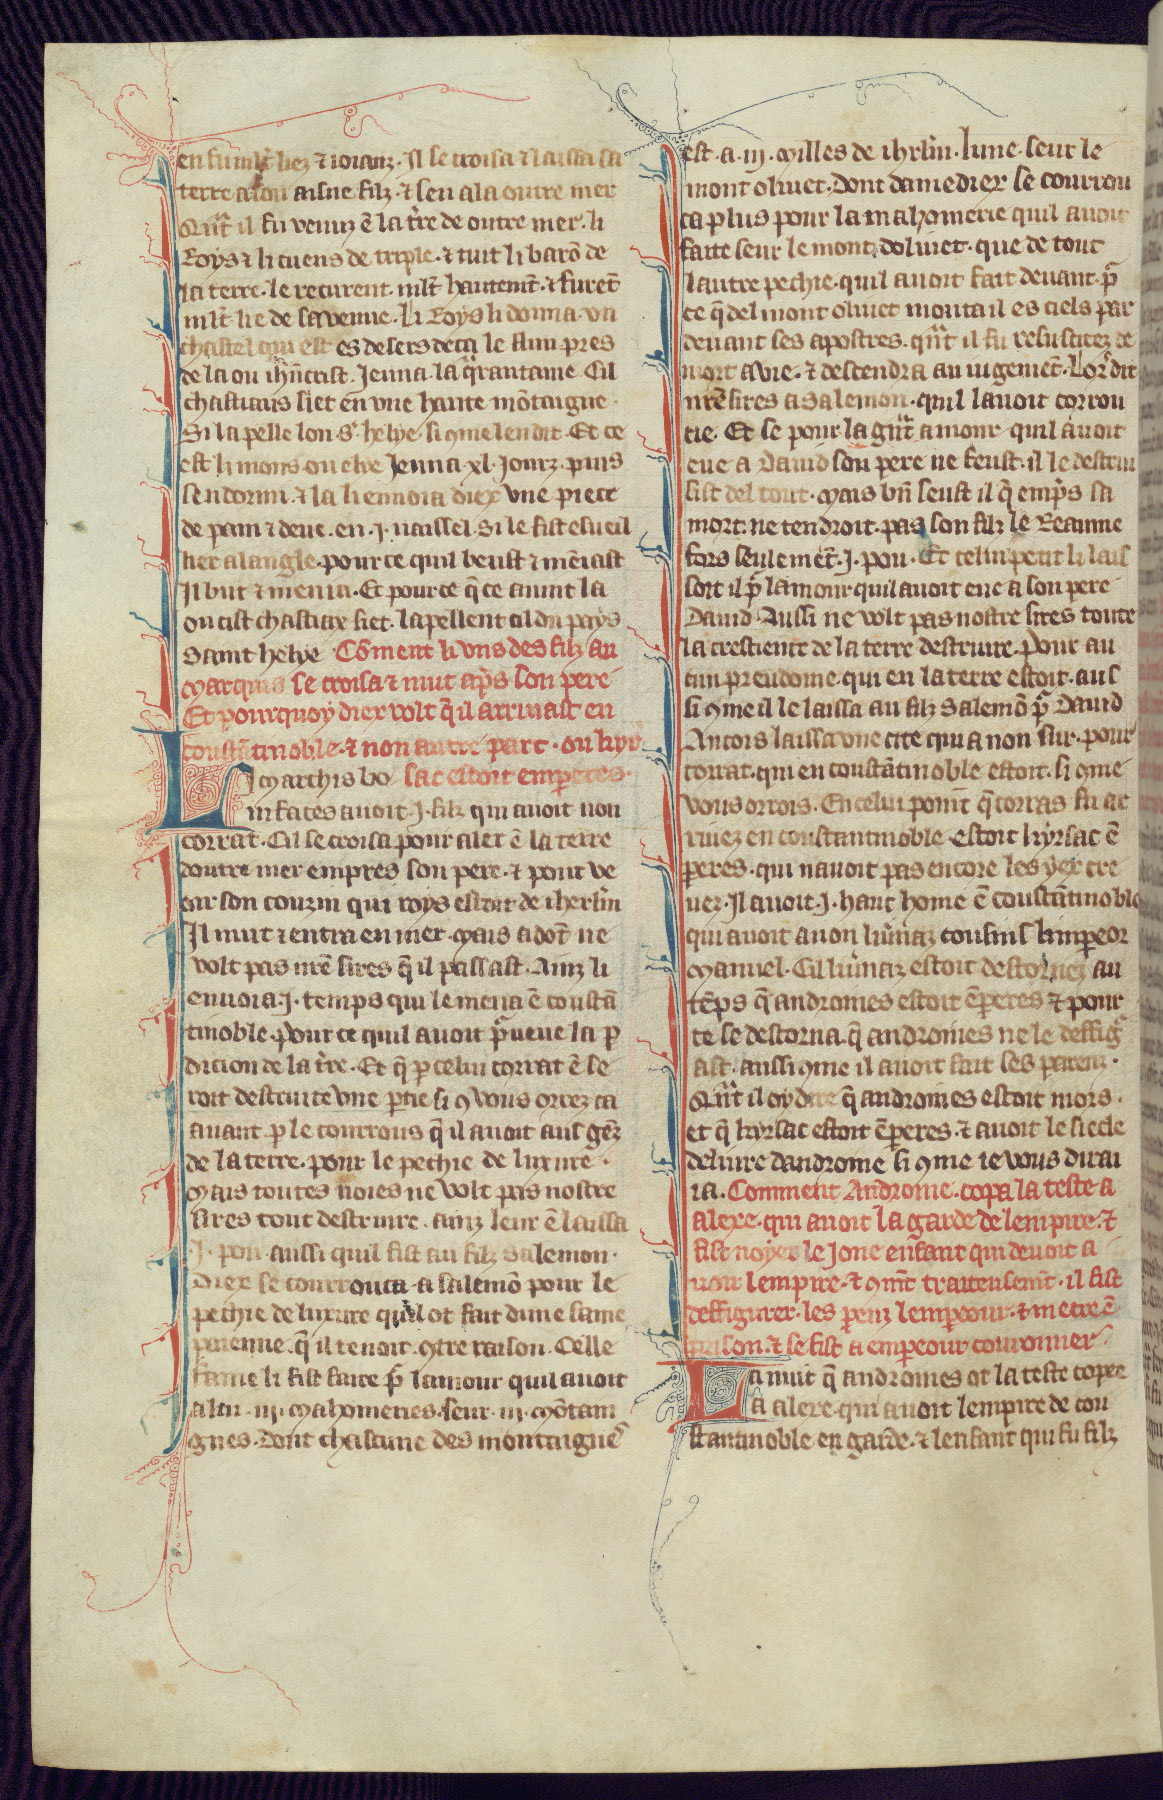 en fu mlt liez ⁊ ioianz. Il se croisa ⁊ laissa sa
terre a son aisne filz. ⁊ sen ala outre mer
Qñt il fu venuz ē la tr̄e de outre mer. li
Roys ⁊ li cuens de triple. ⁊ tuit li barō de
la terre. le recurent. mlt hautemt̄. ⁊ furet̄
mlt lie de sa venue. Li Roys li donna. vn
chastel qui est es desers deca le flum pres
de la ou ihūcrist. Jeuna. la q̄rantaine Cil
chastiaus siet en vne haute mōtaigne.
Si lapelle lon .S. helye. si 9me len dit. Et ce
est li mons ou elye Jeuna .xl. Jourz. puis
sendormi. ⁊ la li enuoia diex vne piece
de pain ⁊ deue. en .J. vaissel. Si le fist esueil
lier a langle. pour ce quil beust ⁊ mēiast
Il but ⁊ menia. Et pour ce q̄ ce auint la
ou cist chastiax siet. lapellent cil du pays
Saint helye Cōment li vns des filz au
Marquis se croisa ⁊ mut ap̄s son pere
Et pourquoy diex volt q̄ il arriuast en
coustātinoble. ⁊ non autre part. ou kyr
LI marchis bo sac estoit emperes.
niface auoit .J. filz qui auoit non
corrat. Cil se croisa pour aler ē la terre
doutre mer empres son pere. ⁊ pour ve
eir son couzin qui roys estoit de iherlm̄
Il mut ⁊ entra en mer. Mais adōt ne
volt pas nr̄e sires q̄ il passast. Ainz li
enuoia .J. temps qui le mena ē coustā
tinoble. Pour ce quil auoit p̄ueue la p
dicion de la tr̄e. Et q̄ p celui corrat ē se
roit destruite vne ptie si 9 vous orrez ca
auant. p le courrous q̄ il auoit aus gēz
de la terre. pour le pechie de luxure.
Mais toutes uoies ne volt pas nostre
sires tout destruire. ainz leur ē laissa
.J. pou. aussi quil fist au filz Salemon.
Diex se courrouca. a salemō pour le
pechie de luxure quil ot fait dune fame
paienne. q̄ il tenoit. 9tre raison. Celle
fame li fist faire p̄ lamour quil auoit
a lui .iij. Mahomeries. seur .iij. Mōtaui
gnes. Dont chascune des montaignes
est .a .iij. Milles de ihrlm̄. lune. seur le
mont oliuet. Dont damediex se courrou
ca plus pour la mahomerie quil auoit
faite seur le mont doliuet. que de tout
lautre pechie. quil auoit fait deuant. p̄
ce q̄ del mont oliuet monta il es ciels par
deuant ses apostres. qñt il fu resuscitez de
mort a vie. ⁊ descendra au iugemet̄. Lor dit
nr̄e sires a Salemon. quil lauoit corrou
cie. Et se pour la gñt amour quil auoit
eue a Dauid son pere ne feust. il le destrui
sist del tout. Mais bn̄ seust il q̄ emp̄s sa
mort. ne tendroit. pas son filz le Reaume
fors seulemet̄ .J. pou. Et celui petit li lais
soit il p̄ lamour quil auoit eue a son pere
Dauid. Aussi ne volt pas nostre sires toute
la crestiente de la terre destruire. Pour au
cun preudome. qui en la terre estoit. aus
si 9me il le laissa au filz Salemō p̄ Dauid
Ancois laissa vne cite qui a non Sur. pour
corrat. qui en coustātinoble estoit. si 9me
vous orrois. En celui point q̄ corras fu ar
riuez en coustantinoble. estoit kyrsac ē
peres. qui nauoit pas encore les yex cre
uez. Il auoit .J. haut home ē coustātinoble
qui auoit a non liurnaz cousins lempeor
Manuel. Cil liurnaz estoit destornez au
tēps q̄ andromes estoit ēperes ⁊ pour
ce se destorna. q̄ andromes ne le deffig̃
ast. aussi 9me il auoit fait ses parenz.
Qñt il oy dire q̄ andromes estoit mors.
et q̄ kyrsac estoit ēperes. ⁊ auoit le siecle
deliure dandrome si 9me ie vous dirai
ia. Comment Androme. copa la teste a
alexe. qui auoit la garde de lempire. ⁊
fist noyer le Jone enfant qui deuoit a
uoir lempire. ⁊ 9mt̄ traiteusemt̄. il fist
deffigurer. les penz lempeour. ⁊ metre ē
prison. ⁊ se fist a empeour couronner.
La nuit q̄ andromes ot la teste copee
a alexe. qui auoit lempire de cou
stantinoble en garde. ⁊ lenfant qui fu filz